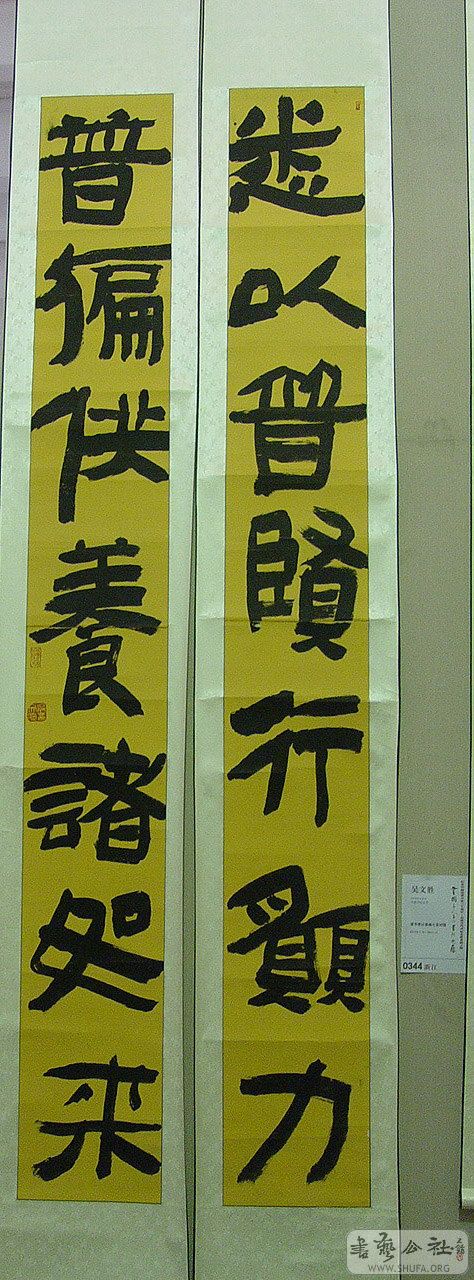 悉以普賢行願力
普徧供養諸如来
吴文胜
0344 浙江
書藝公社
WWW.SHUFA.ORG